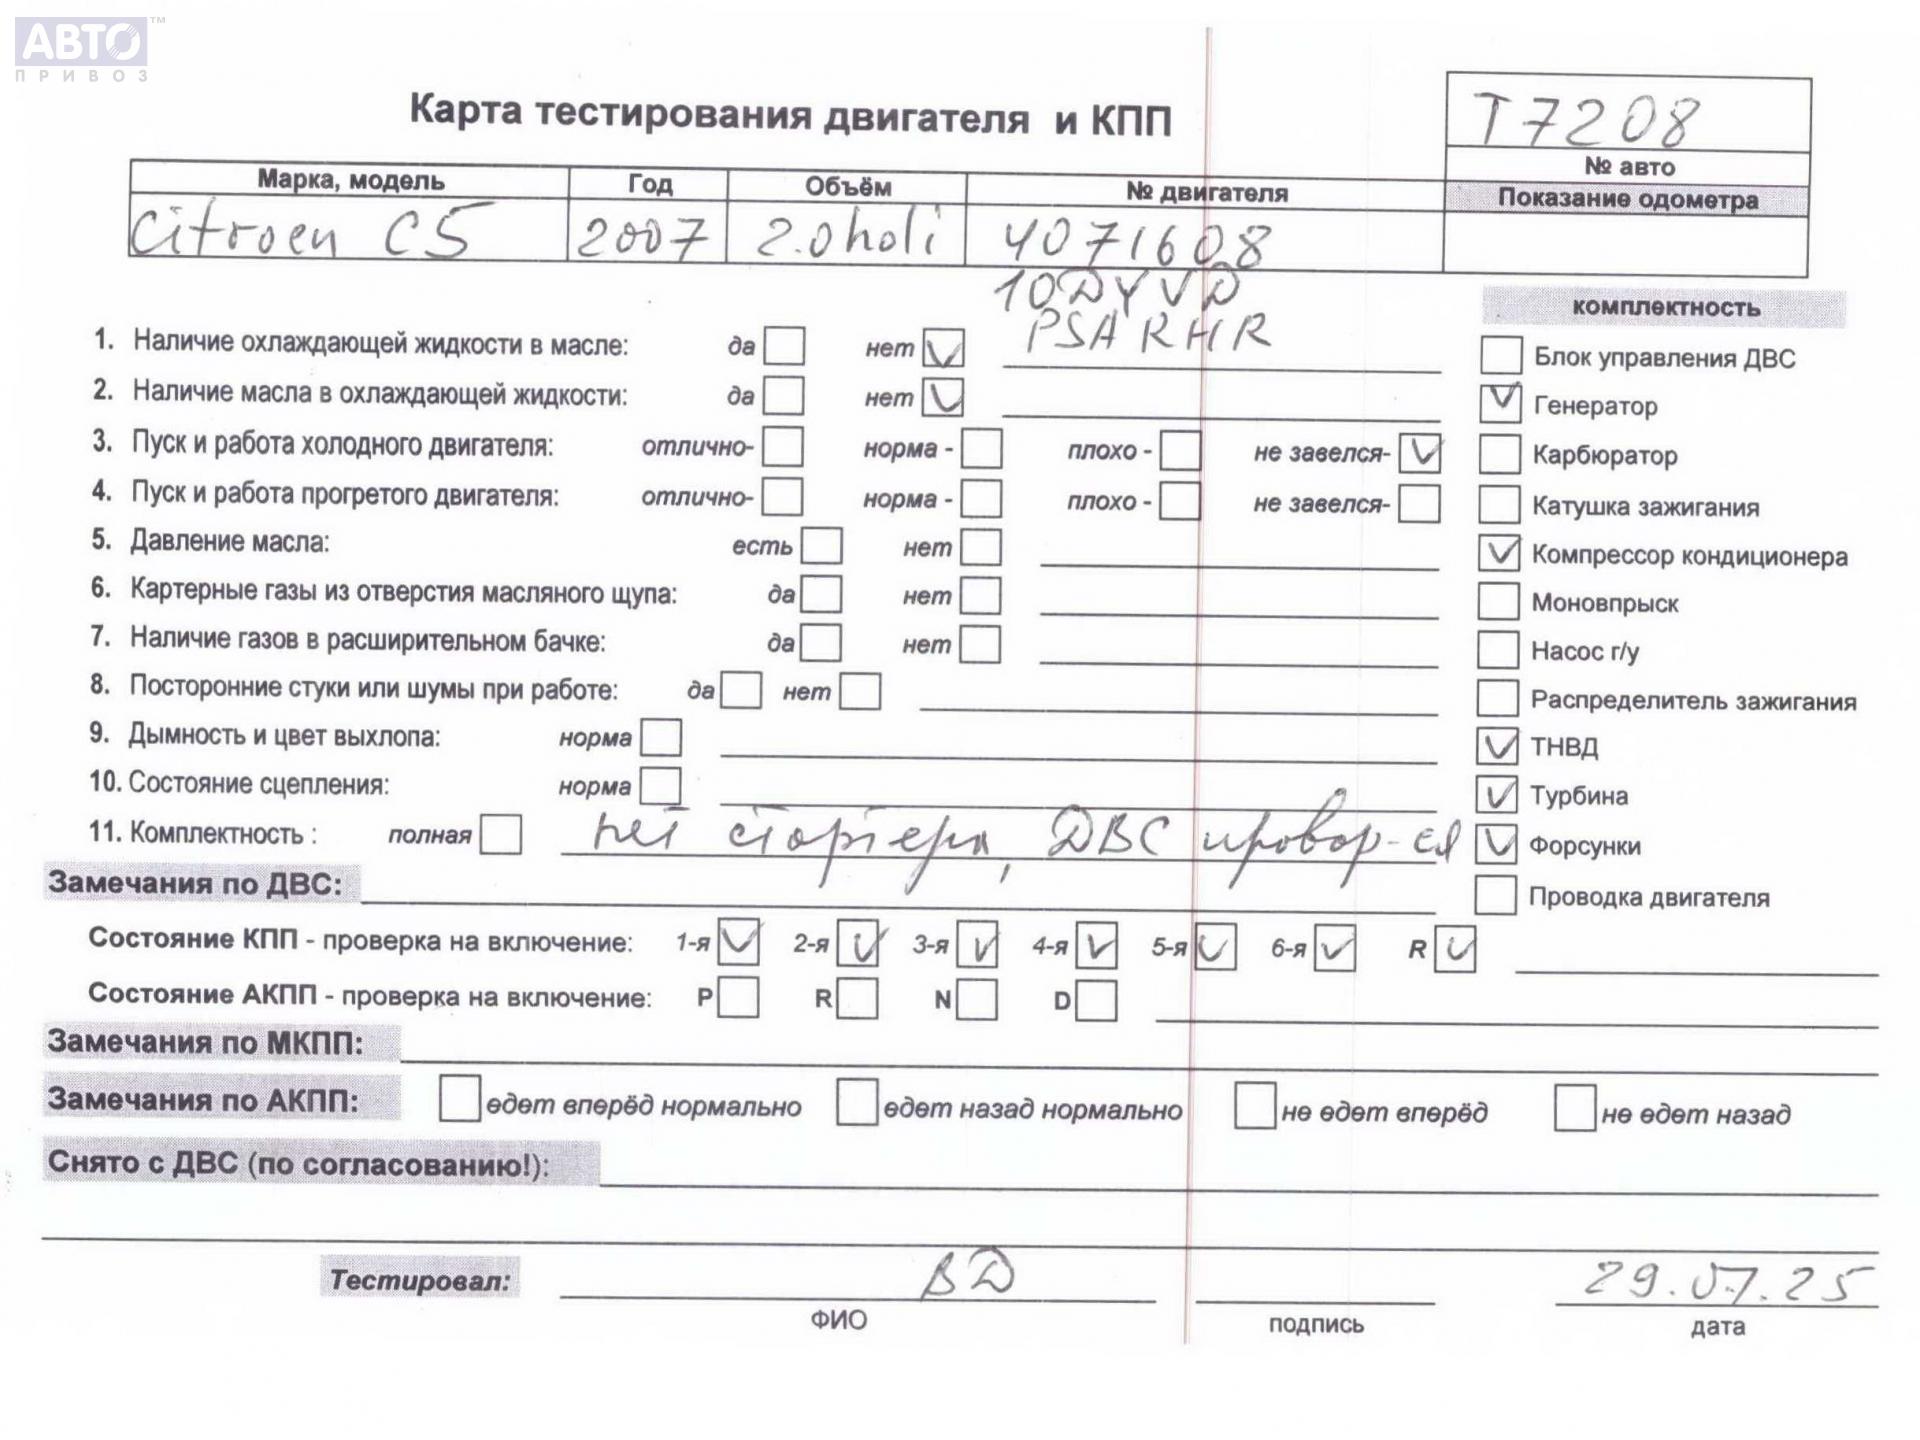 АВТО™
ПРИВОЗ
Карта тестирования двигателя и КПП
T7208
№ авто
Показание одометра
Марка, модель Год Объём № двигателя
Citroen C5 2007 2.0 hdi 4071608
10DYVD
PSA RHR
комплектность
1. Наличие охлаждающей жидкости в масле: да нет
2. Наличие масла в охлаждающей жидкости: да нет
3. Пуск и работа холодного двигателя: отлично- норма - плохо - не завелся-
4. Пуск и работа прогретого двигателя: отлично- норма - плохо - не завелся-
5. Давление масла: есть нет
6. Картерные газы из отверстия масляного щупа: да нет
7. Наличие газов в расширительном бачке: да нет
8. Посторонние стуки или шумы при работе: да нет
9. Дымность и цвет выхлопа: норма
10. Состояние сцепления: норма
11. Комплектность : полная нет стартера, ДВС провор-ся
Блок управления ДВС
Генератор
Карбюратор
Катушка зажигания
Компрессор кондиционера
Моновпрыск
Насос г/у
Распределитель зажигания
ТНВД
Турбина
Форсунки
Проводка двигателя
Замечания по ДВС:
Состояние КПП - проверка на включение: 1-я 2-я 3-я 4-я 5-я 6-я R
Состояние АКПП - проверка на включение: P R N D
Замечания по МКПП:
Замечания по АКПП: едет вперёд нормально едет назад нормально не едет вперёд не едет назад
Снято с ДВС (по согласованию!):
Тестировал: ВД 29.07.25
ФИО подпись дата